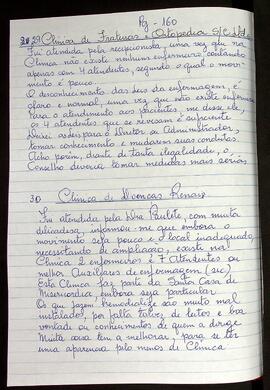 Pg - 160
29 Clínica de Fraturas e Ortopedia S/C Ltda
Fui atendida pela recepcionista, uma vez que na
Clínica não existe nenhum enfermeiro contando
apenas com 4 atendentes, segundo o qual o movi-
mento é pouco.
O desconhecimento das Leis da enfermagem, é
claro e normal, uma vez que não existe enfermeiro
Para o atendimento aos pacientes, me disse ele
os 4 atendentes que se revesam é suficiente
Deixei avisos para o Diretor ou Administrador,
tomar conhecimento e mudarem suas condutas.
Acho porém, diante de tanta ilegalidade, o
Conselho deveria tomar medidas mais sérias
30 Clínica de Doenças Renais
Fui atendida pela Dra Paulete, com muita
delicadesa, informou-me que embora o
movimento seja pouco e o local inadequado,
necessitando de ampliação, existe na
Clínica 2 enfermeiros e 7 Atendentes ou
melhor Auxiliares de enfermagem (sic)
Esta Clínica faz parte da Santa Casa de
Misericordia, embora seja particular.
Os que fazem hemodialize são muito mal
instalados, por falta talvez de leitos e boa
vontade ou conhecimentos de quem a dirige
Muita coisa tem a melhorar, para se ter
uma aparencia pelo menos de Clínica